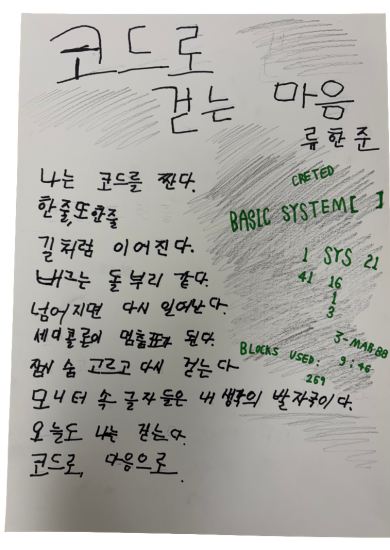 코드로
걷는 마음
류한준
나는 코드를 짠다.
한줄,또한줄
길처럼 이어진다.
버그는 돌부리 같다.
넘어지면 다시 일어난다.
세미콜론이 멈춤표가 된다.
잠시 숨 고르고 다시 걷는다
모니터 속 글자들은 내 생각의 발자국이다.
오늘도 나는 걷는다.
코드로, 다음으로.
CRETED
BASIC SYSTEM[ ]
1 SYS 21
41 16
1
3
3-MAR-88
BLOCKS USED: 9:46
269